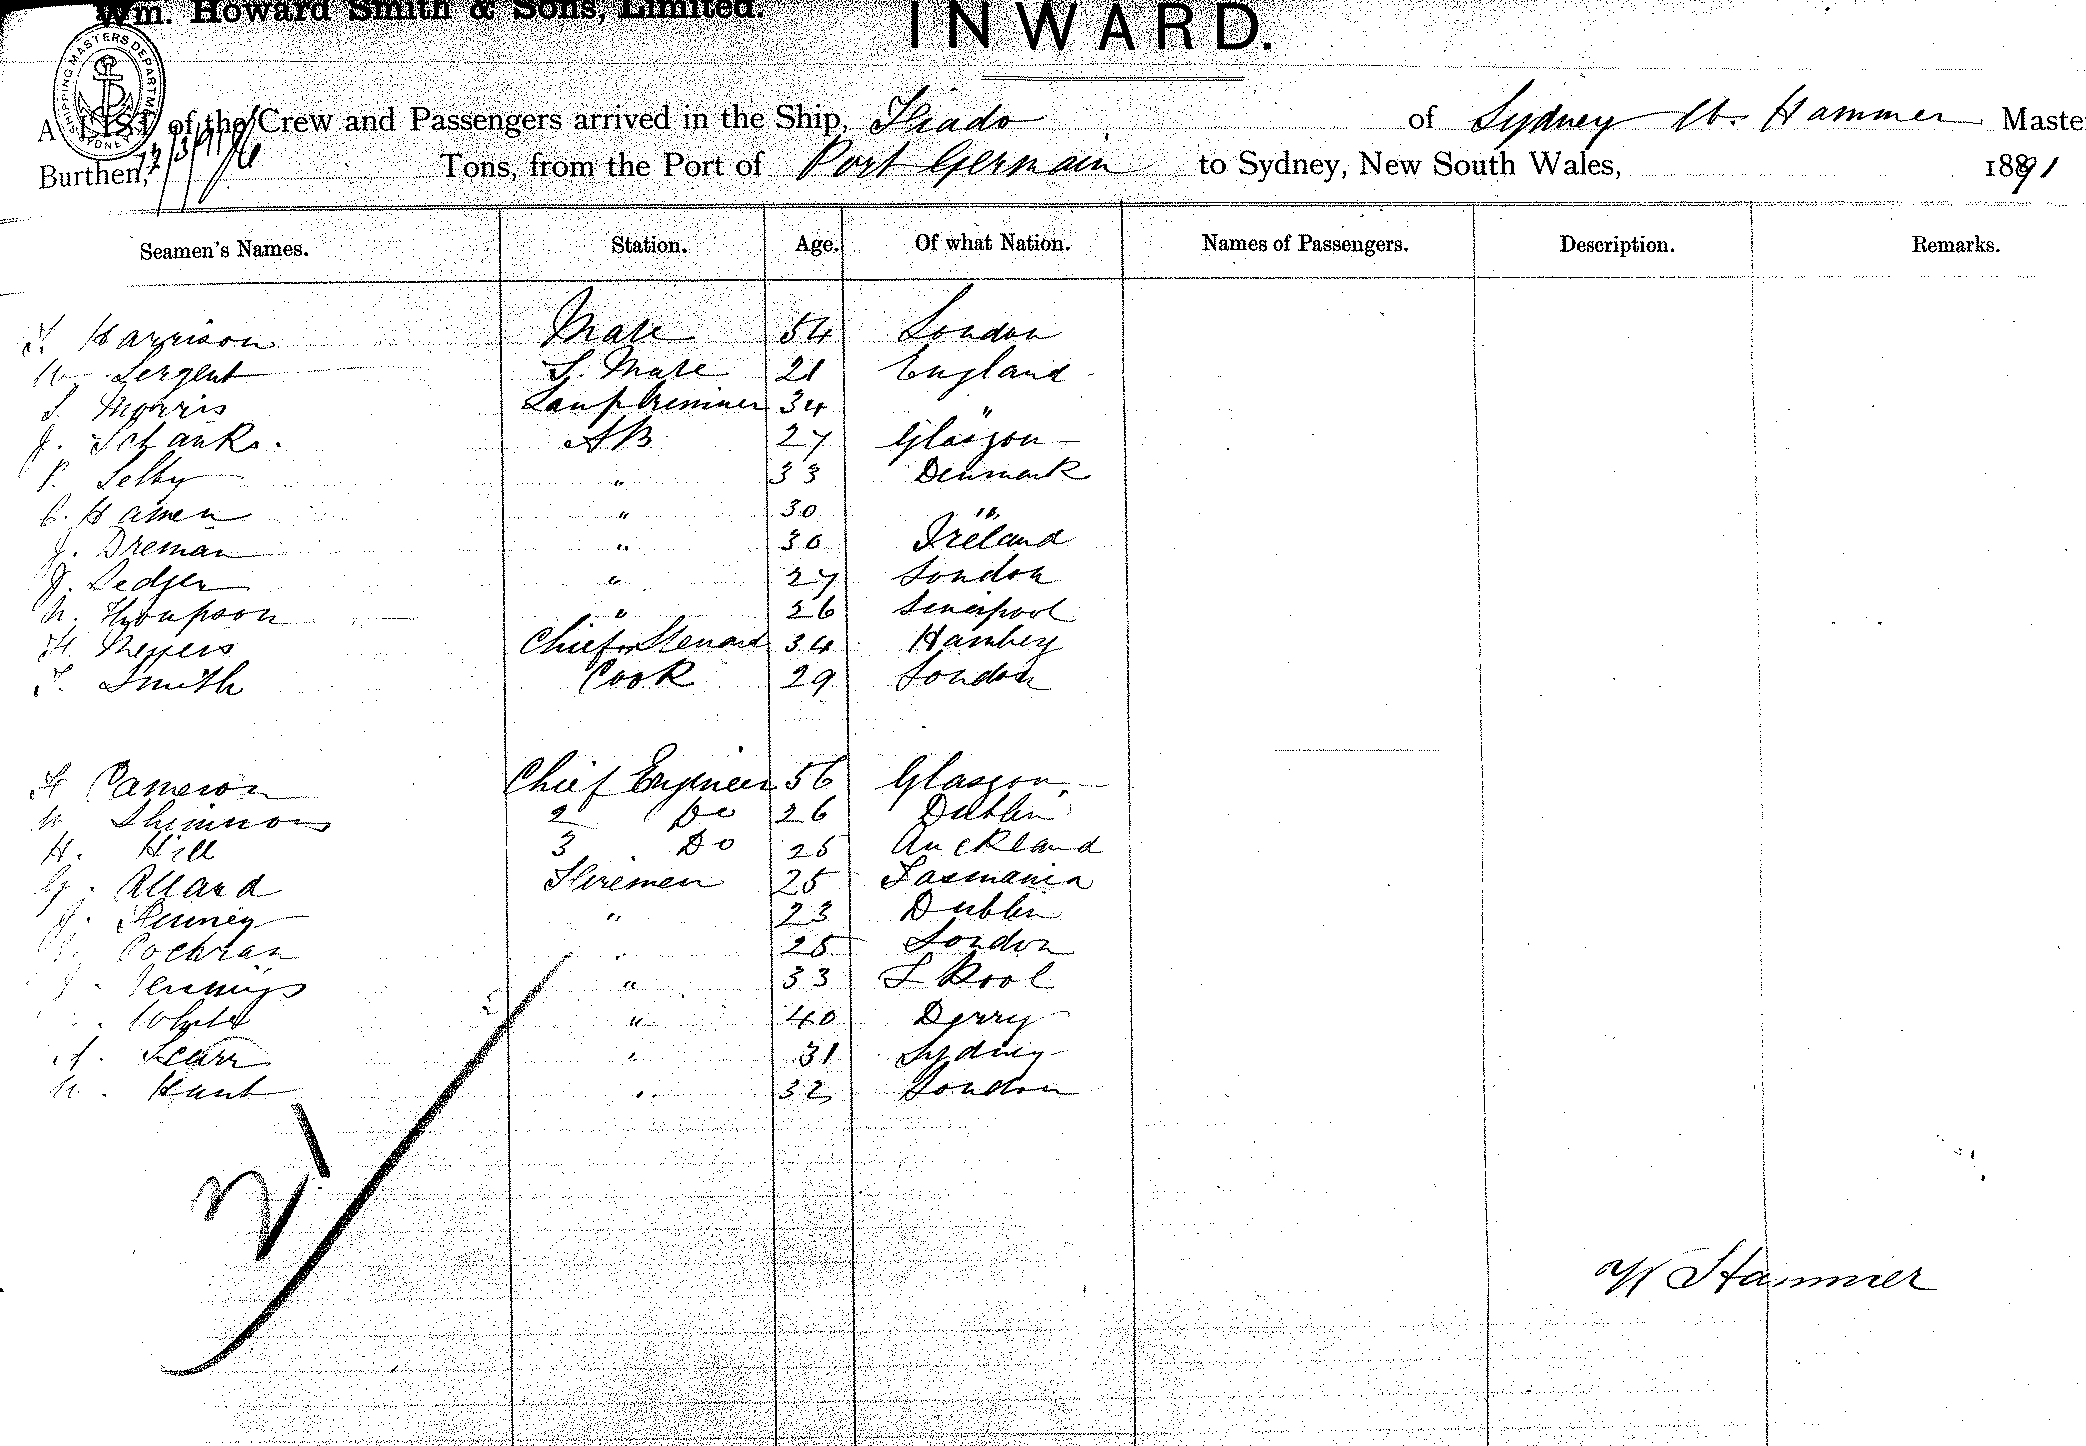 Wm. Howard Smith & Sons, Limited.
INWARD.
SHIPPING MASTERS DEPARTMENT SYDNEY
A LIST of the Crew and Passengers arrived in the Ship, of Sydney W. Hammer Maste
Burthen, Tons, from the Port of Port Germain to Sydney, New South Wales, 1891
Seamen's Names. Station. Age. Of what Nation. Names of Passengers. Description. Remarks.
Harrison Mate 54 London
W. Sergent S. Mate 21 England
S. Morris 34 "
J. Schanks. AB 27 Glasgow
P. Selby " 33 Denmark
C. Hamen " 30 "
J. Breman " 30 Ireland
J. Ledger " 27 London
W. Thompson " 26 Liverpool
H. Meyers Chief Steward 34 Hamberg
T. Smith Cook 29 London
Cameron Chief Engineer 56 Glasgow.
W. 2 Do 26 Dublin
H. Hill 3 Do 25 Auckland
G. Allard Firemen 25 Tasmania
J. " 23 Dublin
Cochran " 25 London
J. Jennings " 33 L Pool
White " 40 Derry
A. Scarr " 31 Sydney
W. Hunt " 32 London
21
W Hammer